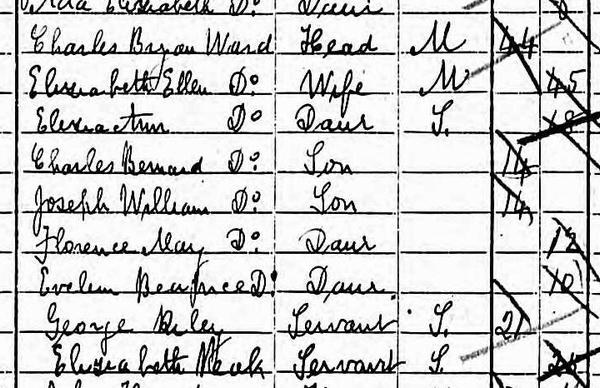 Elizabeth Do Daur
Charles Bryan Ward Head M 44
Elizabeth Ellen Do Wife M 45
Eliza Ann Do Daur S. 18
Charles Bernard Do Son 14
Joseph William Do Son 14
Florence May Do Daur 12
Evelin Beatrice Do Daur. 10
George Riley Servant S. 21
Elizabeth Meak Servant S.